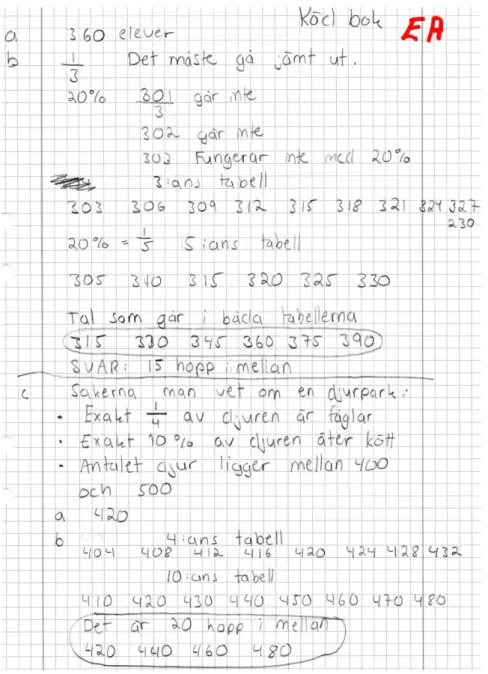 Röd bok EA
a 360 elever
b 1/3 Det måste gå jämt ut.
20% 301/3 går inte
302 går inte
303 Fungerar inte med 20%
3:ans tabell
303 306 309 312 315 318 321 324 327
230
20% = 1/5 5:ans tabell
305 310 315 320 325 330
Tal som går i båda tabellerna
315 330 345 360 375 390
SVAR: 15 hopp i mellan
c Sakerna man vet om en djurpark:
• Exakt 1/4 av djuren är fåglar
• Exakt 10% av djuren äter kött
• Antalet djur ligger mellan 400
och 500
a 420
b 4:ans tabell
404 408 412 416 420 424 428 432
10:ans tabell
410 420 430 440 450 460 470 480
Det är 20 hopp i mellan
420 440 460 480